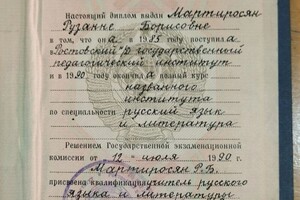 Настоящий диплом выдан Мартиросян
Рузанне Борисовне
в том, что она в 1985 году поступила в
Ростовский государственный
педагогический институт
и в 1990 году окончила полный курс
названного
института
по специальности русский язык
и литература
Решением Государственной экзаменационной
комиссии от 12 июля 1990 г.
Мартиросян Р.Б.
присвоена квалификация учитель русского
языка и литературы